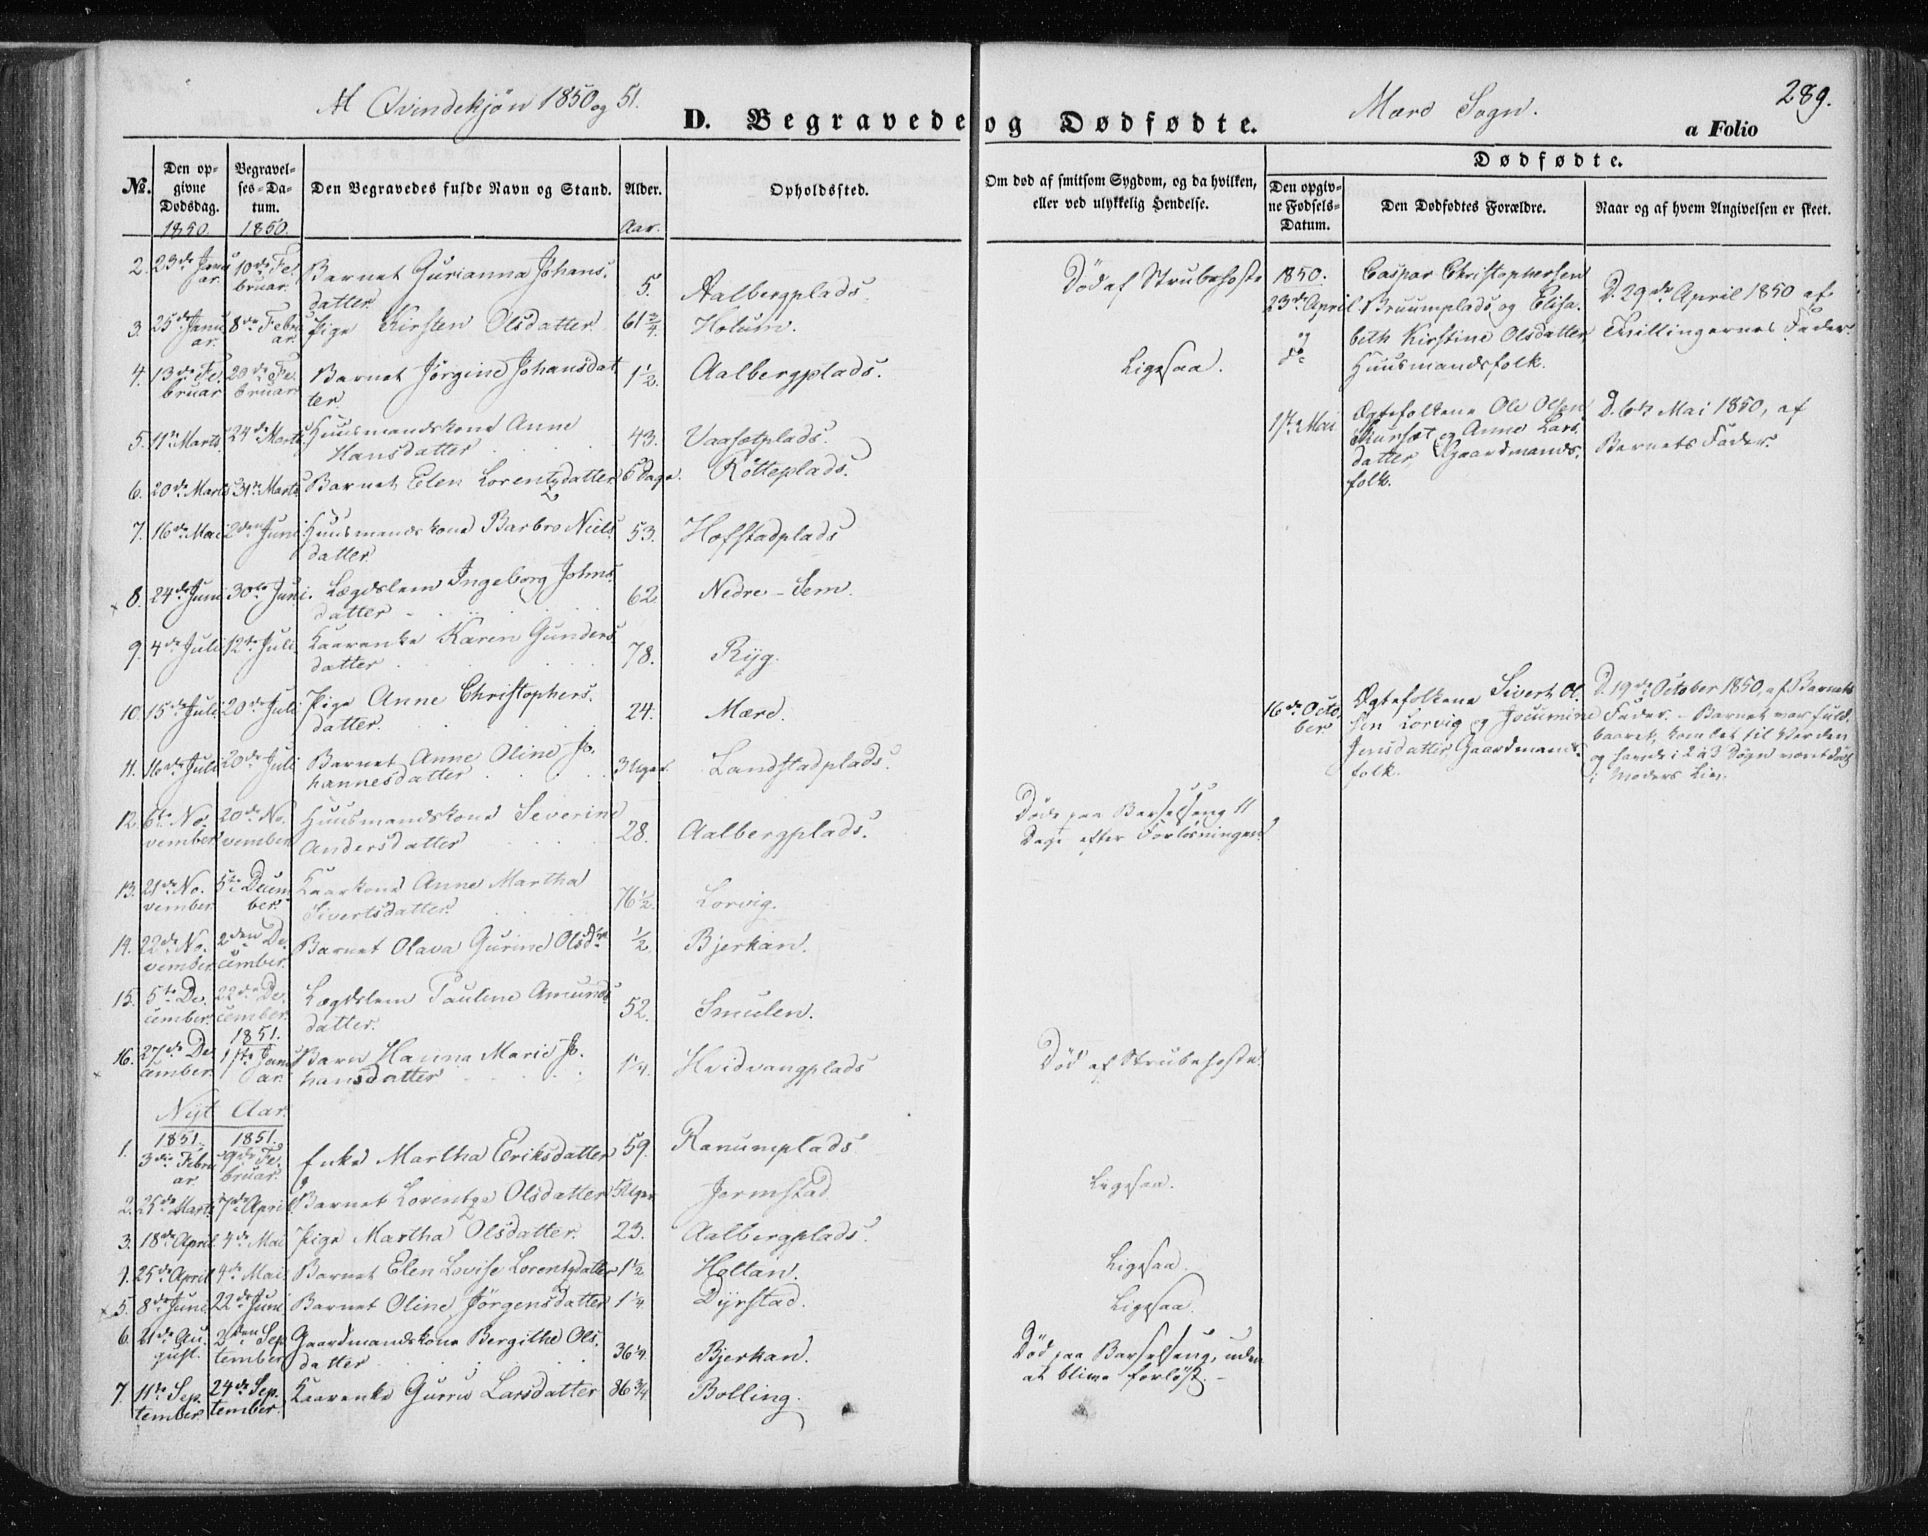 Af Qvindekjön 1850 og 51.
D. Begravede og Dødfødte.
Mære Sogn.
289.
a Folio
No.
Den opgivne Dødsdag.
Begravelses-Datum.
Den Begravedes fulde Navn og Stand.
Alder.
Opholdssted.
Om død af smitsom Sygdom, og da hvilken, eller ved ulykkelig Hendelse.
Dødfødte.
Den opgivne Fødsels-Datum.
Den Dødfødtes Forældre.
Naar og af hvem Angivelsen er skeet.
1850. 1850. Aar.
2. 23de Januar. 10de Februar. Barnet Gurianna Johansdatter 5. Aalbergplads. Død af Strubehoste
3. 25de Januar. 8de Februar. Pige Kirsten Olsdatter 61 3/4. Holum.
4. 13de Februar 20de Februar Barnet Jörgine Johansdatter. 1 1/2. Aalbergplads. Ligesaa.
5. 11te Marts 24de Marts Huusmandskone Anne Hansdatter 43. Vaasetplads.
6. 20de Marts 31te Marts Barnet Elen Lorentzdatter 5 Dage. Rötteplads.
7. 16de Mai 2den Juni Huusmandskone Barbro Nielsdatter 53. Hofstadplads
8. 24de Juni 30te Juni. Lægdslem Ingeborg Johnsdatter 62 Nedre-Sem.
9. 4de Juli 12te Juli Kaarenke Karen Gundersdatter 78. Ryg.
10. 15de Juli 20de Juli Pige Anne Christophersdatter. 24. Mære.
11. 16de Juli 20de Juli Barnet Anne Oline Johannesdatter 3 Uger. Landstadplads.
12. 6te November 20de November Huusmandskone Severine Andersdatter 28. Aalbergplads. Døde paa Barselseng 11 Dage efter Forløsningen.
13. 21de November 5te December. Kaarkone Anne Martha Sivertsdatter. 76 1/2. Lorvig.
14. 22de November 2den December. Barnet Olava Gurine Olsdtr 1/2. Bjerkan.
15. 5te December. 22de December. Lægdslem Pauline Amundsdatter. 52. Smulen.
1851.
16. 27de December. 1ste Januar. Barn Hanna Marie Johansdatter 1 1/4. Hvidvangplads Død af Strubehoste.
Nyt Aar.
1851. 1851.
1. 3die Februar. 9de Februar. Enke Martha Eriksdatter 59. Ranumplads
2. 25de Marts 7de April Barnet Lorentze Olsdatter 5 Uger Jormstad Ligesaa.
3. 18de April 4de Mai Pige Martha Olsdatter. 23. Aalbergplads.
4. 25de April 4de Mai Barnet Elen Lovise Lorentzdatter 1 1/2 Heltan. Ligesaa.
5. 8de Juni 22de Juni Barnet Oline Jörgensdatter 1 1/4. Dyrstad. Ligesaa.
6. 21de August. 2den September Gaardmandskone Bergithe Olsdatter 36 1/4. Bjerkan. Død paa Barselseng, uden at blive forløst.
7. 11te September 24de September. Kaarenke Gurru Larsdatter 86 3/4 Bolling.
1850. 23de April og do Caspar Christophersen Bruumplads og Elisabeth Kirstine Olsdatter Huusmandsfolk. D. 29de April 1850 af Tvillingernes Fader.
1ste Mai Ægtefolkene Ole Olsen og Anne Larsdatter, Gaardmandsfolk. D. 6te Mai 1850, af Barnets Fader.
16de October Ægtefolkene Sivert Olsen Lorvig og Jocumine Jensdatter Gaardmandsfolk. D. 19de October 1850, af Barnets Fader. - Barnet var fuldbaaret, kom død til Verden og havde i 2 à 3 Døgn været død i Moders Liv.